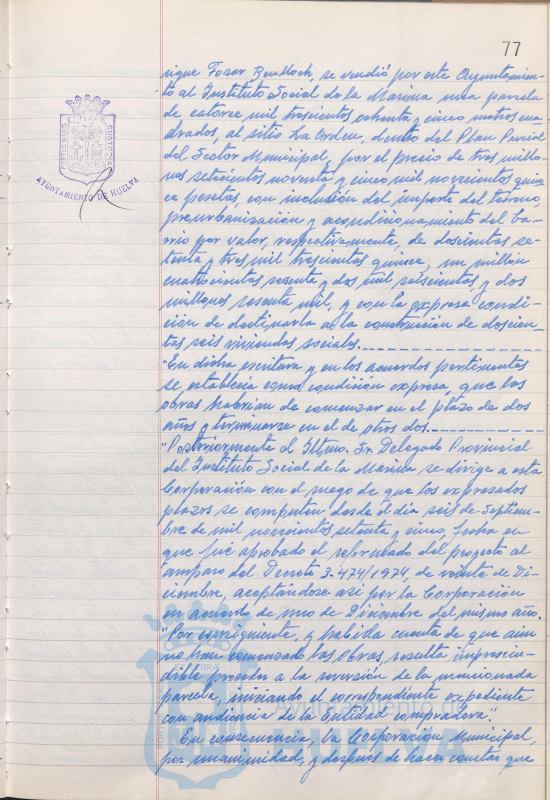 77
rique Fosar Benlloch, se vendió por este Ayuntamien-
to al Instituto Social de la Marina una parcela
de catorce mil trescientos ochenta y cinco metros cua-
drados, al sitio La Orden, dentro del Plan Parcial
del Sector Municipal, por el precio de tres millo-
nes setecientos noventa y cinco mil novecientas quin-
ce pesetas, con inclusión del importe del terreno,
preurbanización y acondicionamiento del ba-
rrio por valor, respectivamente, de doscientas se-
tenta y tres mil trescientas quince, un millón
cuatrocientas sesenta y dos mil seiscientas, y dos
millones sesenta mil, y con la expresa condi-
ción de destinarla a la construcción de doscien-
tas seis viviendas sociales.
"En dicha escritura y en los acuerdos pertinentes
se establecía como condición expresa, que las
obras habrían de comenzar en el plazo de dos
años y terminarse en el de otros dos.
"Posteriormente el Iltmo. Sr. Delegado Provincial
del Instituto Social de la Marina se dirige a esta
Corporación con el ruego de que los expresados
plazos se computen desde el día seis de Septiem-
bre de mil novecientos setenta y cinco, fecha en
que fue aprobado el reformado del proyecto al
amparo del Decreto 3.474/1974, de veinte de Di-
ciembre, aceptándose así por la Corporación
en acuerdo de uno de Diciembre del mismo año.
"Por consiguiente, y habida cuenta de que aún
no han comenzado las obras, resulta imprescin-
dible proceder a la reversión de la mencionada
parcela, iniciando el correspondiente expediente
con audiencia de la Entidad compradora".
En consecuencia, la Corporación Municipal,
por unanimidad, y después de hacer constar que
AYUNTAMIENTO DE HUELVA
Ayuntamiento de
HUELVA